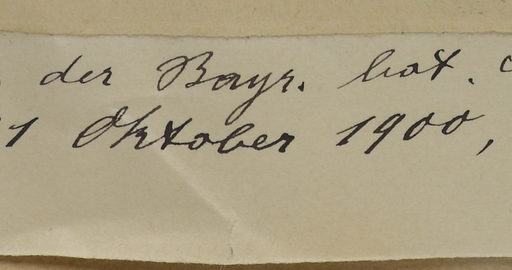 der Bayr. bot.
1 Oktober 1900,